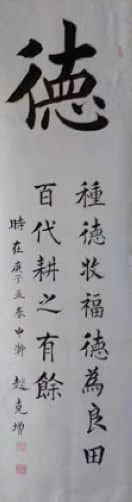 德
種德收福德為良田
百代耕之有餘
時在庚子孟春中澣 趙克增